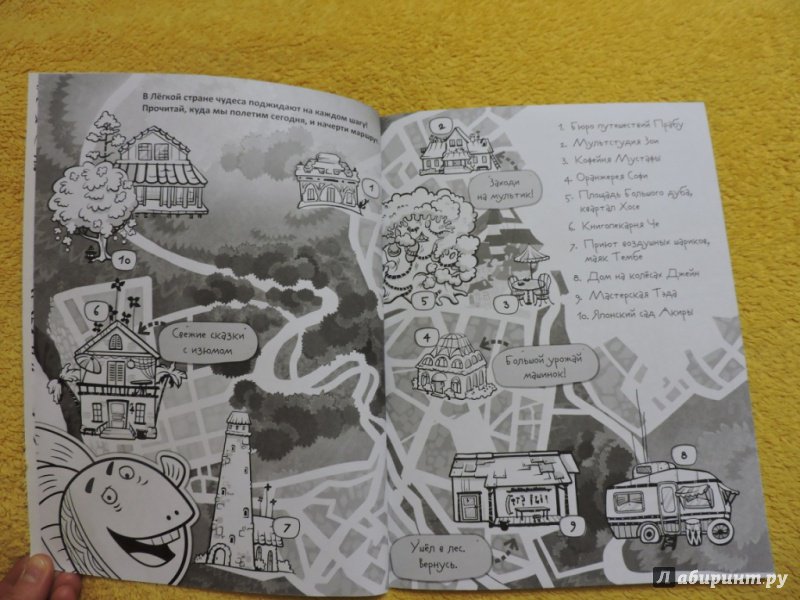 В Лёгкой стране чудеса поджидают на каждом шагу!
Прочитай, куда мы полетим сегодня, и начерти маршрут
10
1
6
Свежие сказки
с изюмом
7
2
Заходи
на мультик!
5
3
4
Большой урожай
машинок!
8
9
Ушёл в лес.
Вернусь.
1. Бюро путешествий Прабу
2. Мультстудия Зои
3. Кофейня Мустафы
4. Оранжерея Софи
5. Площадь Большого дуба,
квартал Хосе
6. Книгопекарня Че
7. Приют воздушных шариков,
маяк Тембе
8. Дом на колёсах Джейн
9. Мастерская Тэда
10. Японский сад Акиры
Лабиринт.ру